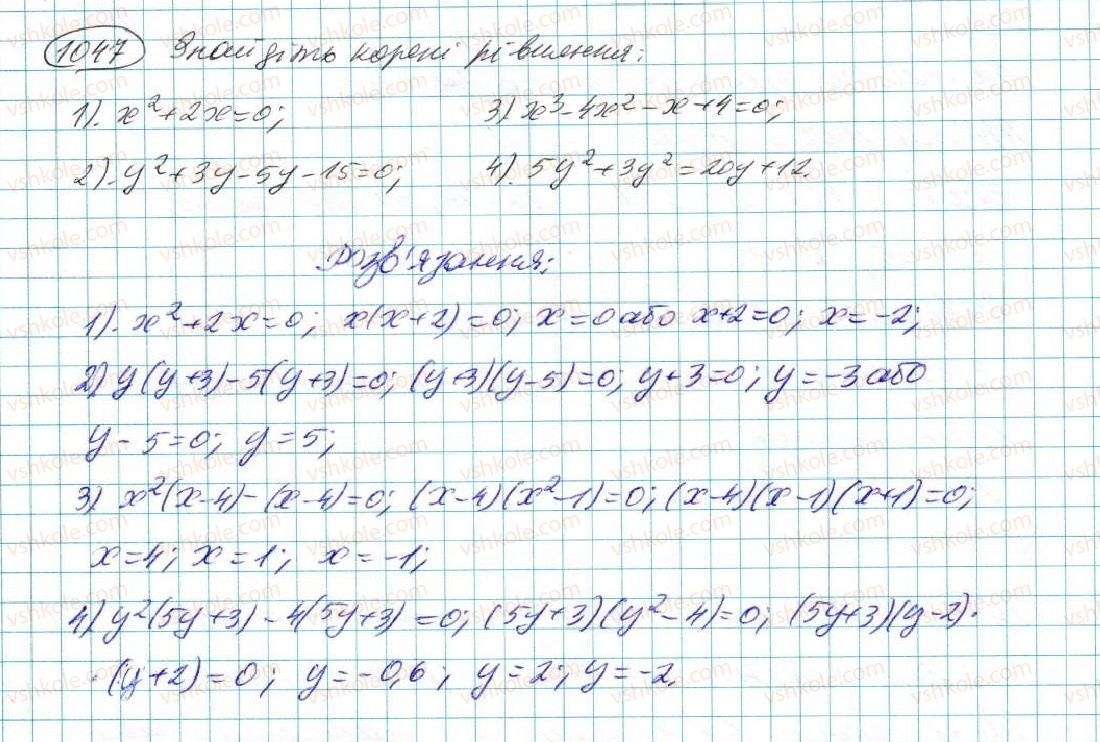 1047 Знайдіть корені рівняння:
1). x²+2x=0; 3) x³-4x²-x+4=0;
2). y²+3y-5y-15=0; 4). 5y²+3y²=20y+12.
Розв'язання:
1). x²+2x=0; x(x+2)=0; x=0 або x+2=0; x=-2;
2) y(y+3)-5(y+3)=0; (y+3)(y-5)=0; y+3=0; y=-3 або
y-5=0; y=5;
3) x²(x-4)-(x-4)=0; (x-4)(x²-1)=0; (x-4)(x-1)(x+1)=0;
x=4; x=1; x=-1;
4) y²(5y+3)-4(5y+3)=0; (5y+3)(y²-4)=0; (5y+3)(y-2)·
·(y+2)=0; y=-0,6; y=2; y=-2.
vshkole.com